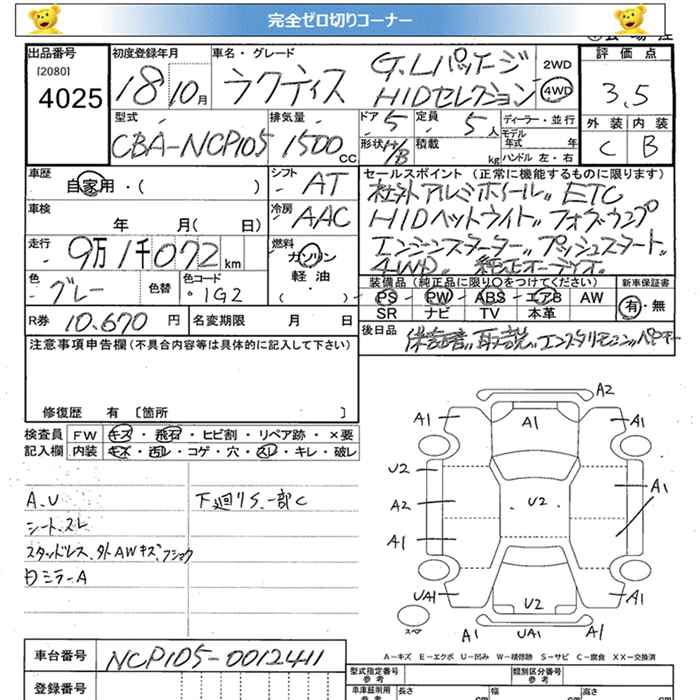 完全ゼロ切りコーナー
出品番号 初度登録年月 車名・グレード 評価点
[2080]
4025 18 10月 ラクティス G.Lパッケージ HIDセレクション 2WD 4WD 3.5
型式 排気量 ドア 定員 ディーラー・並行 外装 内装
CBA-NCP105 1500CC 5 5人 モデル年式 年 C B
形状 H/B 積載 kg ハンドル 左・右
車歴 シフト セールスポイント(正常に機能するものに限ります)
自家用・( ) AT 社外アルミホイール〃 ETC
車検 冷房 HIDヘットライト〃 フォグランプ
年 月( 日) AAC エンジンスターター〃 プッシュスタート〃
走行 燃料 4WD 純正オーディオ
9万1千072km ガソリン
軽油
( )
色 色替 色コード 装備品(純正品に限り○をつけてください) 新車保証書
グレー 1G2 PS PW ABS エアB AW 有・無
SR ナビ TV 本革
R券 10.670円 名変期限 月 日 後日品 保証書〃 取説〃
注意事項申告欄(不具合内容等は具体的に記入して下さい)
修復歴 有 〔箇所 〕
検査員 FW キズ・飛石・ヒビ割・リペア跡・×要
記入欄 内装 キズ・汚れ・コゲ・穴・スレ・キレ・破レ
A.U 下廻りS.一部C
シート.スレ
スタッドレス.外AWキズ.フショク
Dミラ-A
A2
A1 A1 A1
U2
A2 U2 A1
A1
UA1 U2 A1
スペア A1 UA1
A-キズ E-エクボ U-凹み W-補修跡 S-サビ C-腐食 XX-交換済
車台番号 NCP105-0012411 型式指定番号 参考 類別区分番号 参考
登録番号 車庫証明用 参考 長さ cm 幅 cm 高さ cm